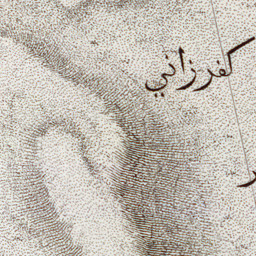 كفرزاني